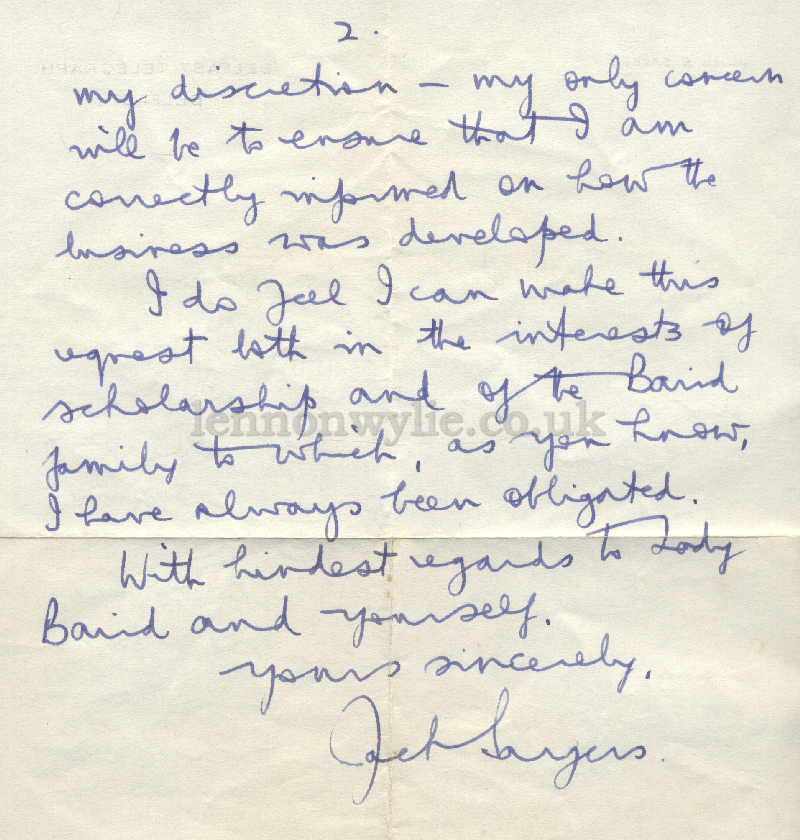 2.
my discretion – my only concern
will be to ensure that I am
correctly informed on how the
business was developed.
I do feel I can make this
request both in the interests of
scholarship and of the Baird
lennonwylie.co.uk
family to which, as you know,
I have always been obligated.
With kindest regards to Lady
Baird and yourself.
Yours sincerely,
Jack Sayers.